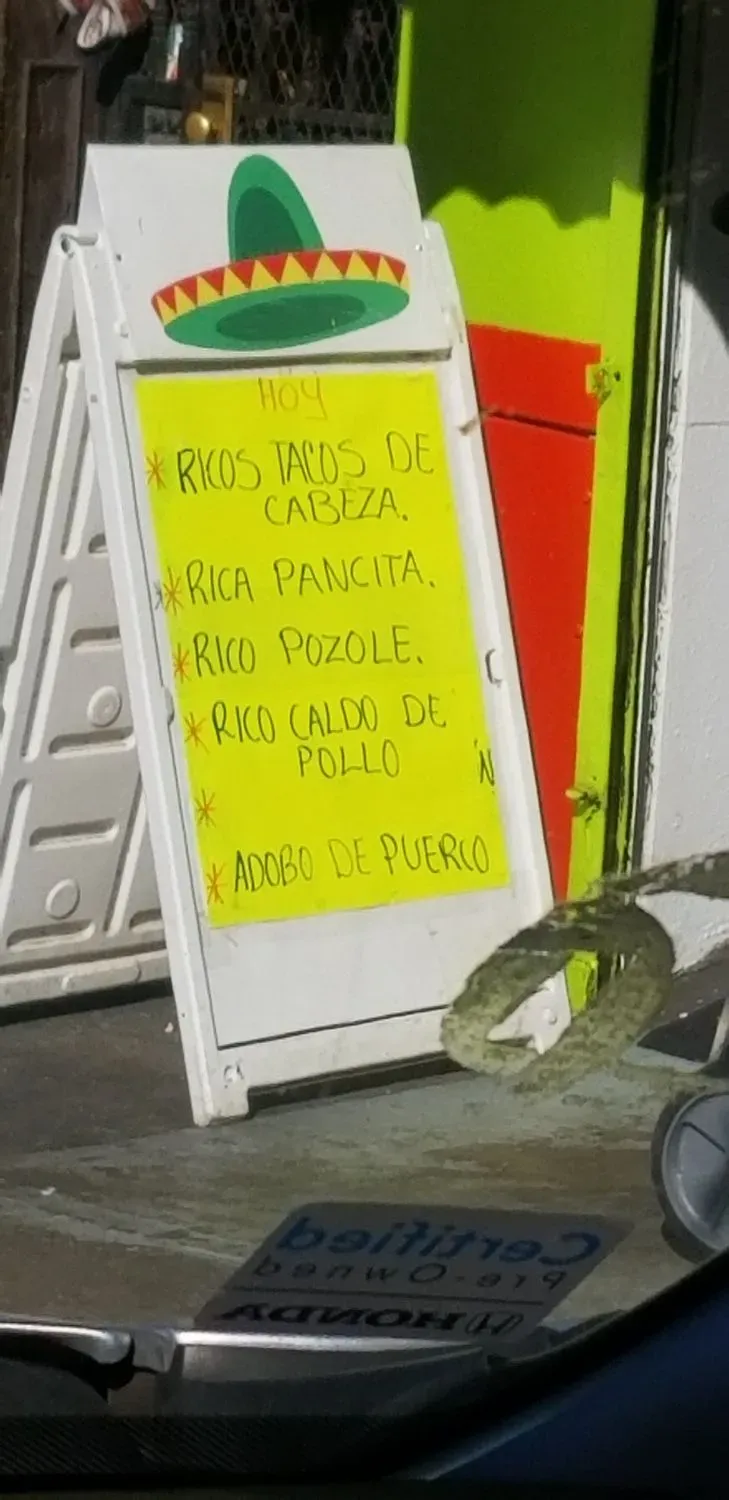 HOY
* RICOS TACOS DE
CABEZA.
* RICA PANCITA.
* RICO POZOLE.
* RICO CALDO DE
POLLO
*
* ADOBO DE PUERCO
Certified
Pre-Owned
HONDA